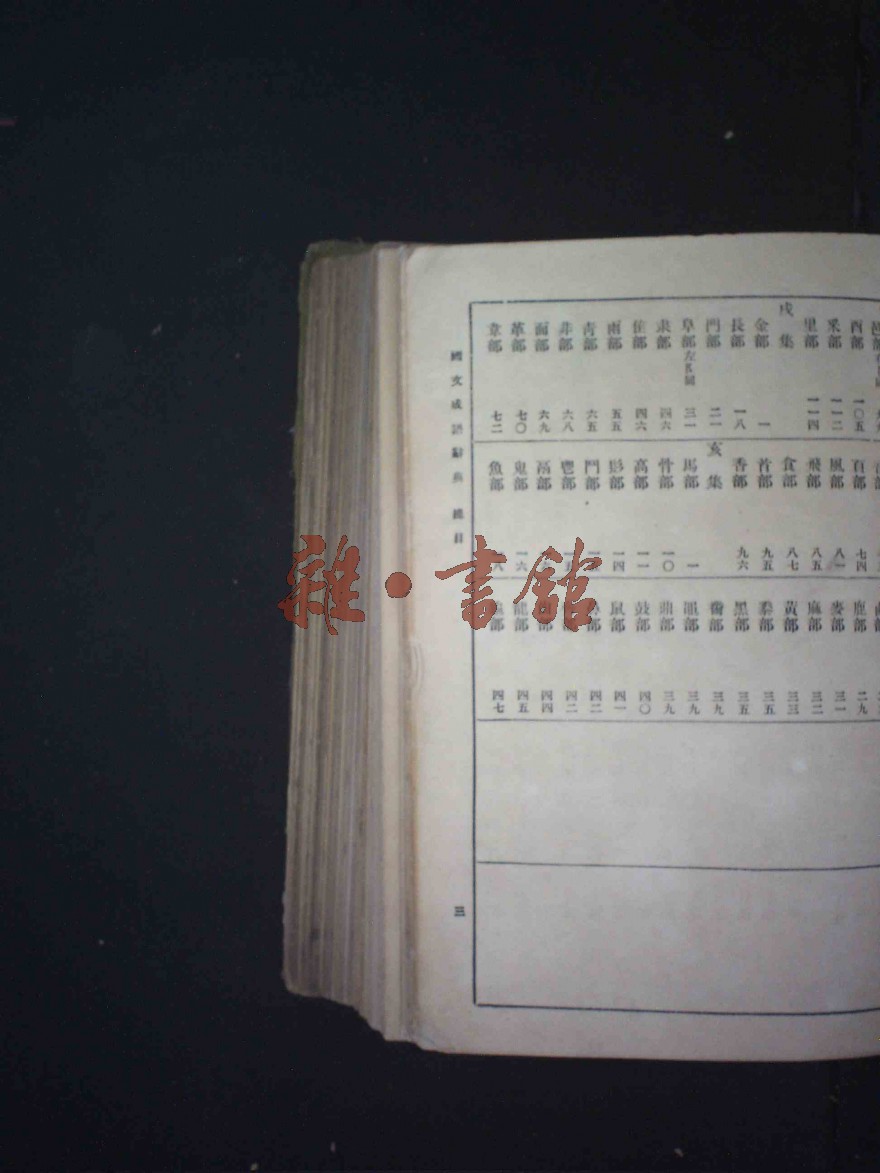 酉部 一〇五
釆部 一一二
里部 一一四
戌集
金部 一
長部 一八
門部 二一
阜部左阝同 三一
隶部 四六
隹部 四六
雨部 五五
青部 六五
非部 六八
面部 六九
革部 七〇
韋部 七二
頁部 七四
風部 八一
飛部 八五
食部 八七
首部 九五
香部 九六
亥集
馬部 一
骨部 一〇
高部 一一
髟部 一四
鬥部
鬯部
鬲部
鬼部 一六
魚部
鹿部 二九
麥部 三一
麻部 三二
黃部 三三
黍部 三五
黑部 三五
黹部 三九
黽部 三九
鼎部 三九
鼓部 四〇
鼠部 四一
四二
四二
四四
龍部 四五
四七
國文成語辭典 總目
三
雜·書館